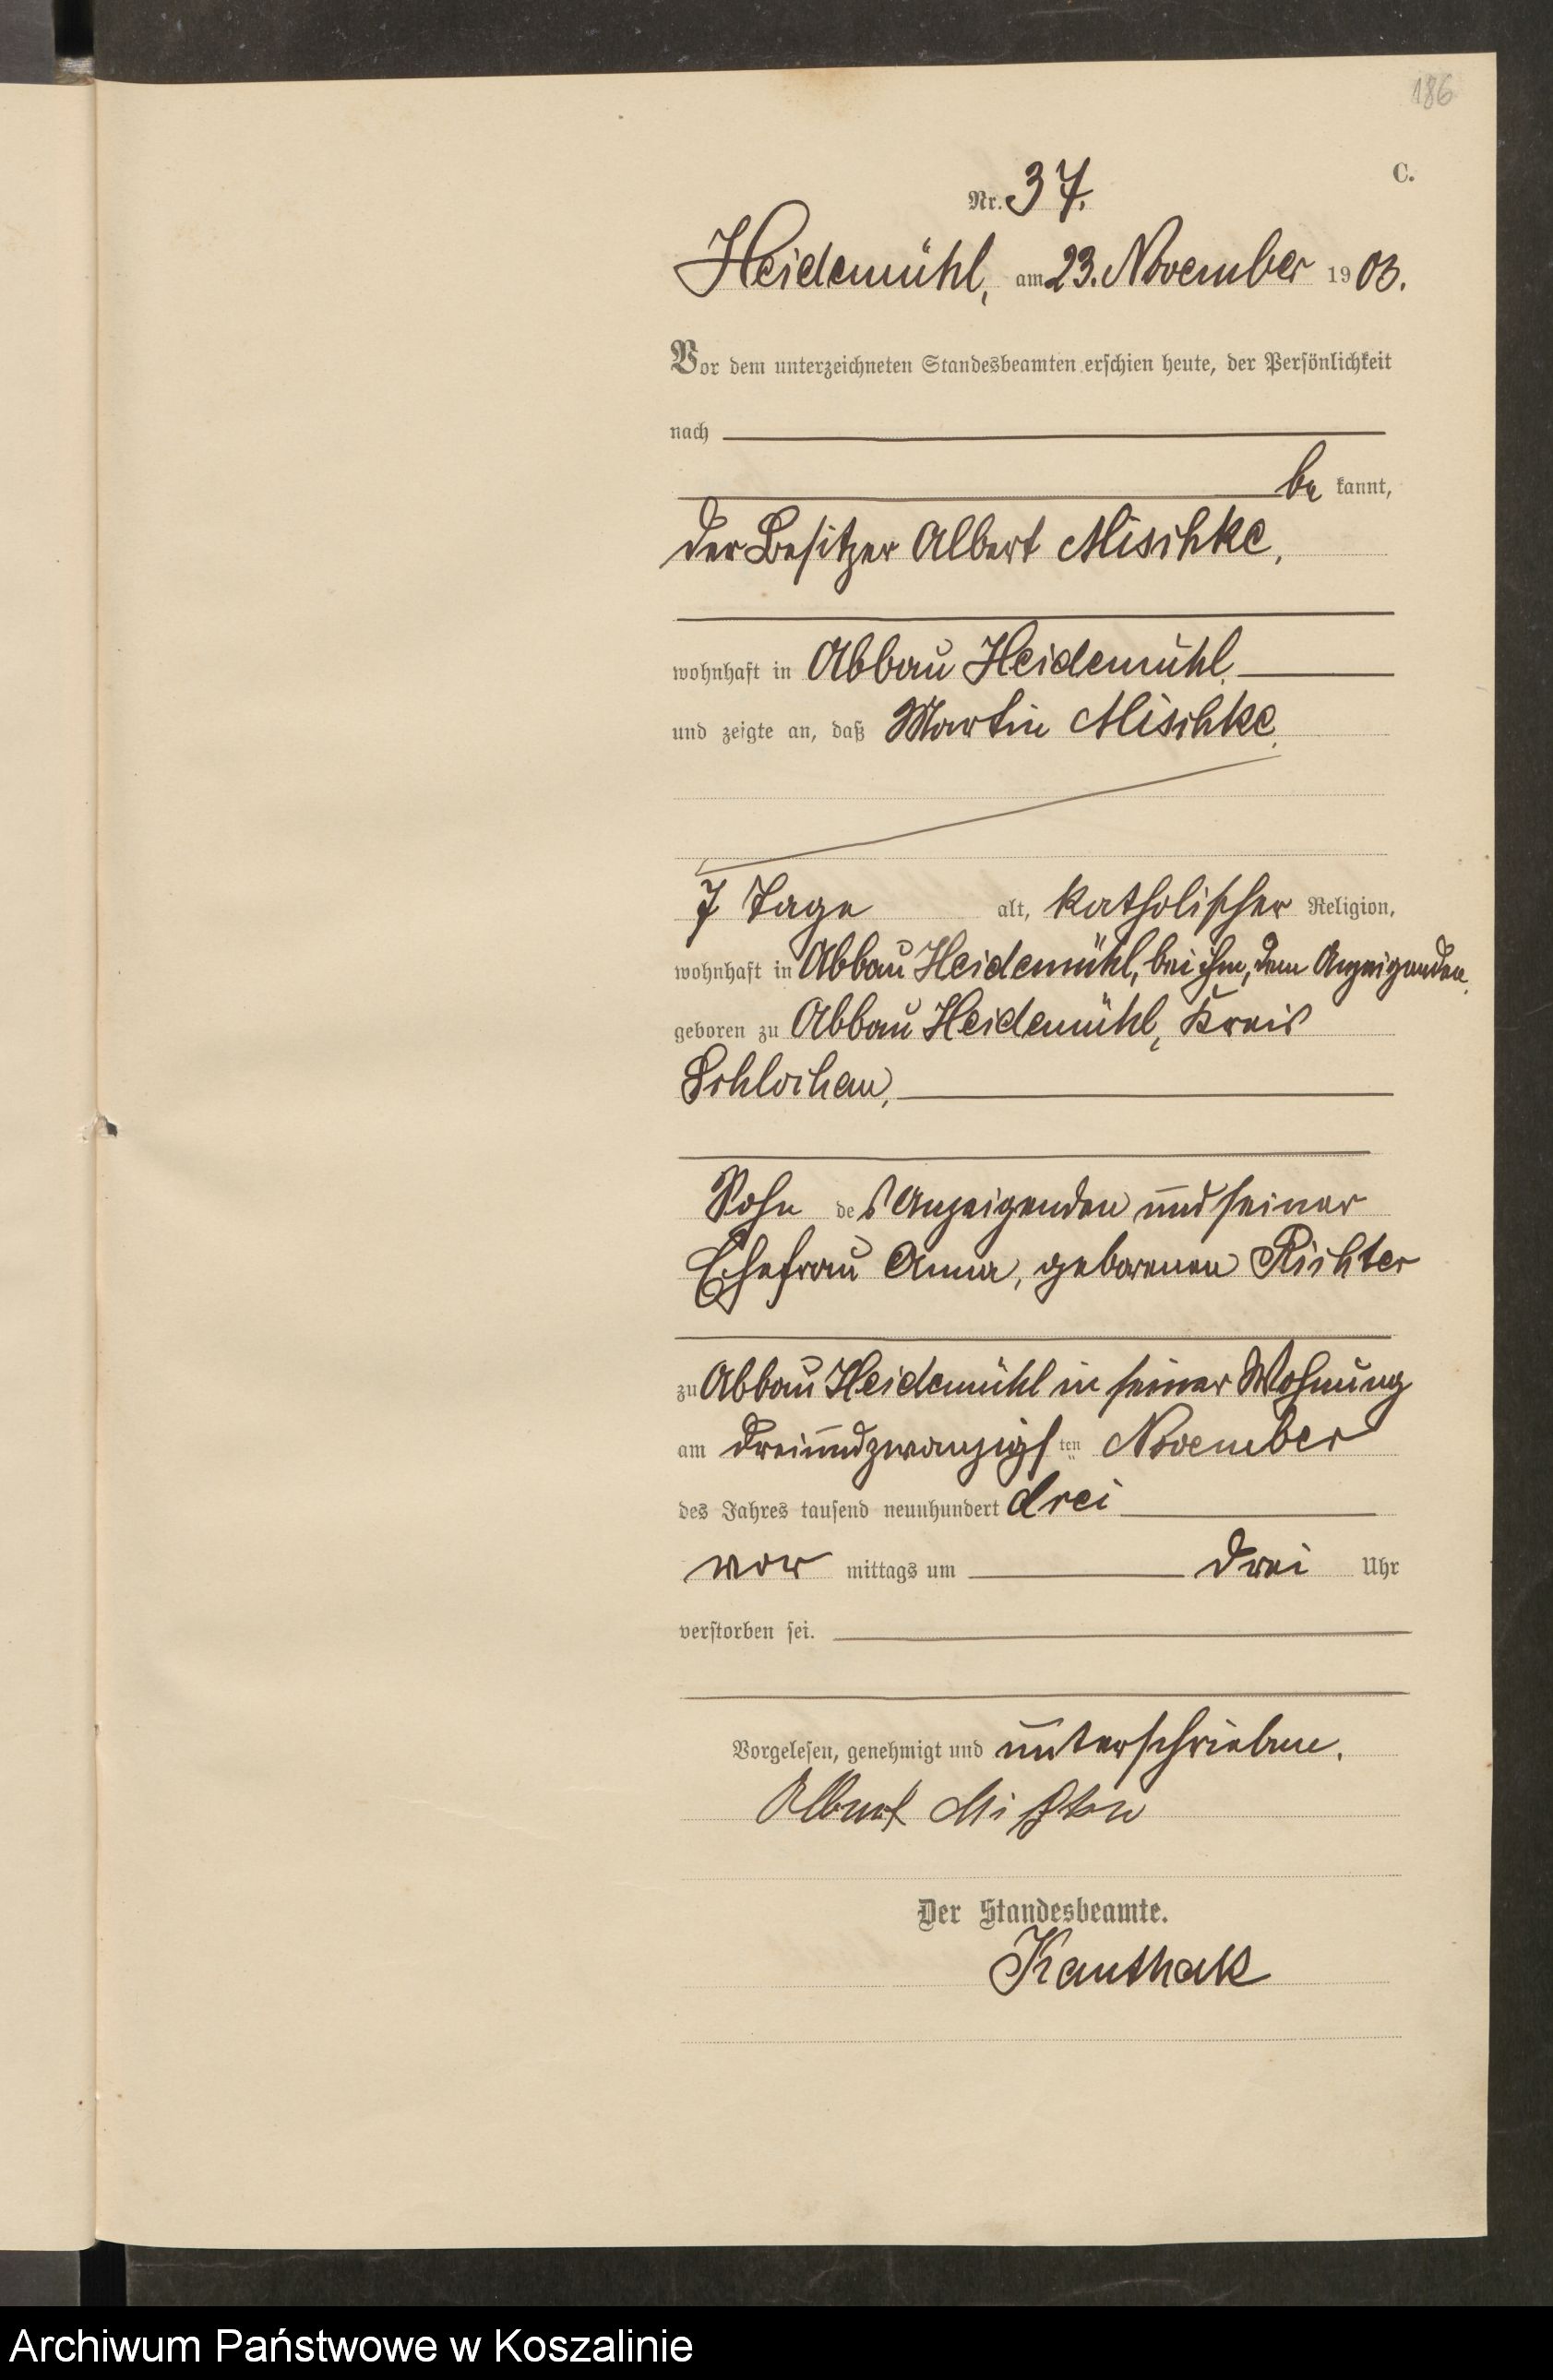 186
C.
Nr. 37.
Heidemühl, am 23. November 1903.
Vor dem unterzeichneten Standesbeamten erschien heute, der Persönlichkeit
nach
be kannt,
der Besitzer Albert Mischke,
wohnhaft in Abbau Heidemühl,
und zeigte an, daß Martin Mischke,
7 Tage alt, katholischer Religion,
wohnhaft in Abbau Heidemühl, bei ihm, dem Anzeigenden,
geboren zu Abbau Heidemühl, Kreis
Schlochau,
Sohn des Anzeigenden und seiner
Ehefrau Anna, geborenen Richter
zu Abbau Heidemühl in seiner Wohnung
am dreiundzwanzigsten November
des Jahres tausend neunhundert drei
vor mittags um drei Uhr
verstorben sei.
Vorgelesen, genehmigt und unterschrieben.
Albert Mischke
Der Standesbeamte.
Kauthak
Archiwum Państwowe w Koszalinie